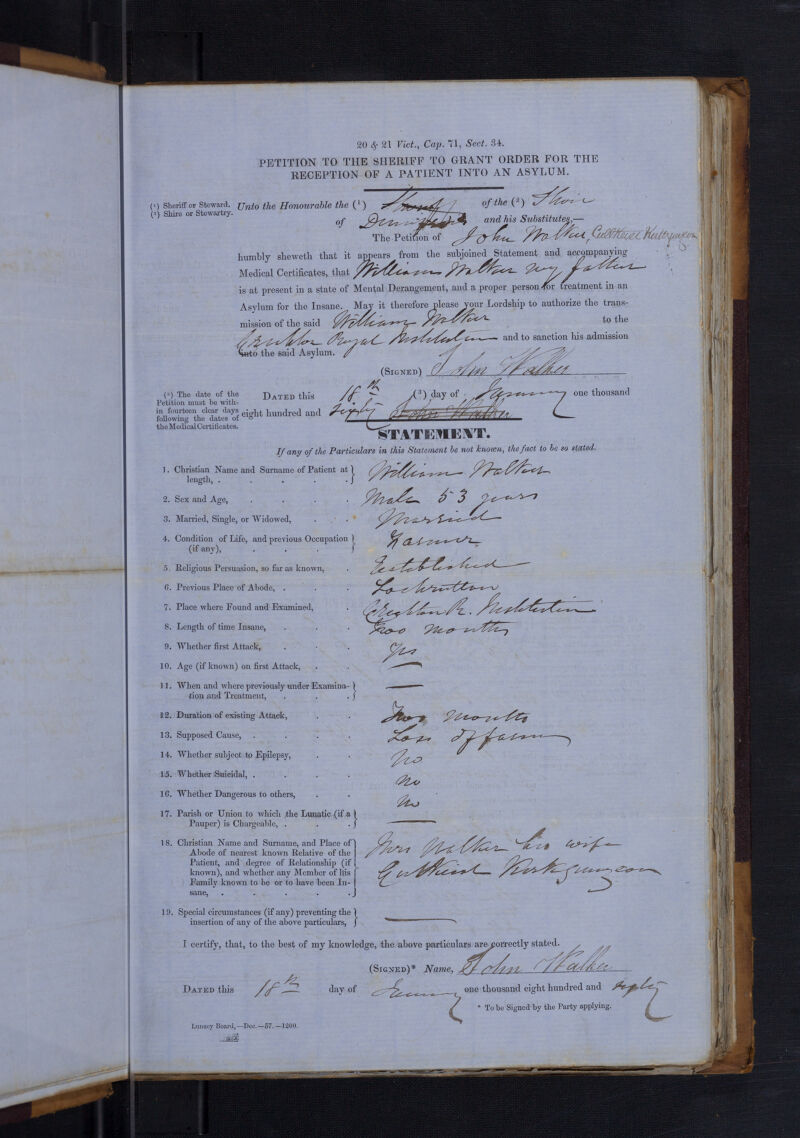 20 & 21 Vict., Cap. 71, Sect. 34.
PETITION TO THE SHERIFF TO GRANT ORDER FOR THE
RECEPTION OF A PATIENT INTO AN ASYLUM.
(¹) Sheriff or Steward.
(²) Shire or Stewartry.
Unto the Honourable the (¹) of the (²) Shire
of and his Substitutes,—
The Petition of John Walker,
humbly sheweth that it appears from the subjoined Statement and accompanying
Medical Certificates, that William Walker my father
is at present in a state of Mental Derangement, and a proper person for treatment in an
Asylum for the Insane. May it therefore please your Lordship to authorize the trans-
mission of the said William Walker to the
Crichton Royal Institution and to sanction his admission
into the said Asylum.
(SIGNED) John Walker
(³) The date of the
Petition must be with-
in fourteen clear days
following the dates of
the Medical Certificates.
DATED this 18th (³) day of January one thousand
eight hundred and sixty John Walker
STATEMENT.
If any of the Particulars in this Statement be not known, the fact to be so stated.
1. Christian Name and Surname of Patient at
length, . William Walker
2. Sex and Age, Male 53 years
3. Married, Single, or Widowed, Married
4. Condition of Life, and previous Occupation
(if any), Farmer
5. Religious Persuasion, so far as known, Established
6. Previous Place of Abode, . Lochrutton
7. Place where Found and Examined, Crichton R. Institution
8. Length of time Insane, Two months
9. Whether first Attack, Yes
10. Age (if known) on first Attack, —
11. When and where previously under Examina-
tion and Treatment, —
12. Duration of existing Attack, Two months
13. Supposed Cause, . Loss of farm
14. Whether subject to Epilepsy, No
15. Whether Suicidal, . No
16. Whether Dangerous to others, No
17. Parish or Union to which the Lunatic (if a
Pauper) is Chargeable, . —
18. Christian Name and Surname, and Place of
Abode of nearest known Relative of the
Patient, and degree of Relationship (if
known), and whether any Member of his
Family known to be or to have been In-
sane, . Mrs Walker his wife
Kirkgunzeon
19. Special circumstances (if any) preventing the
insertion of any of the above particulars, —
I certify, that, to the best of my knowledge, the above particulars are correctly stated.
(SIGNED)* Name, John Walker
DATED this 18th day of January one thousand eight hundred and sixty
* To be Signed by the Party applying.
Lunacy Board,—Dec.—57.—1200.